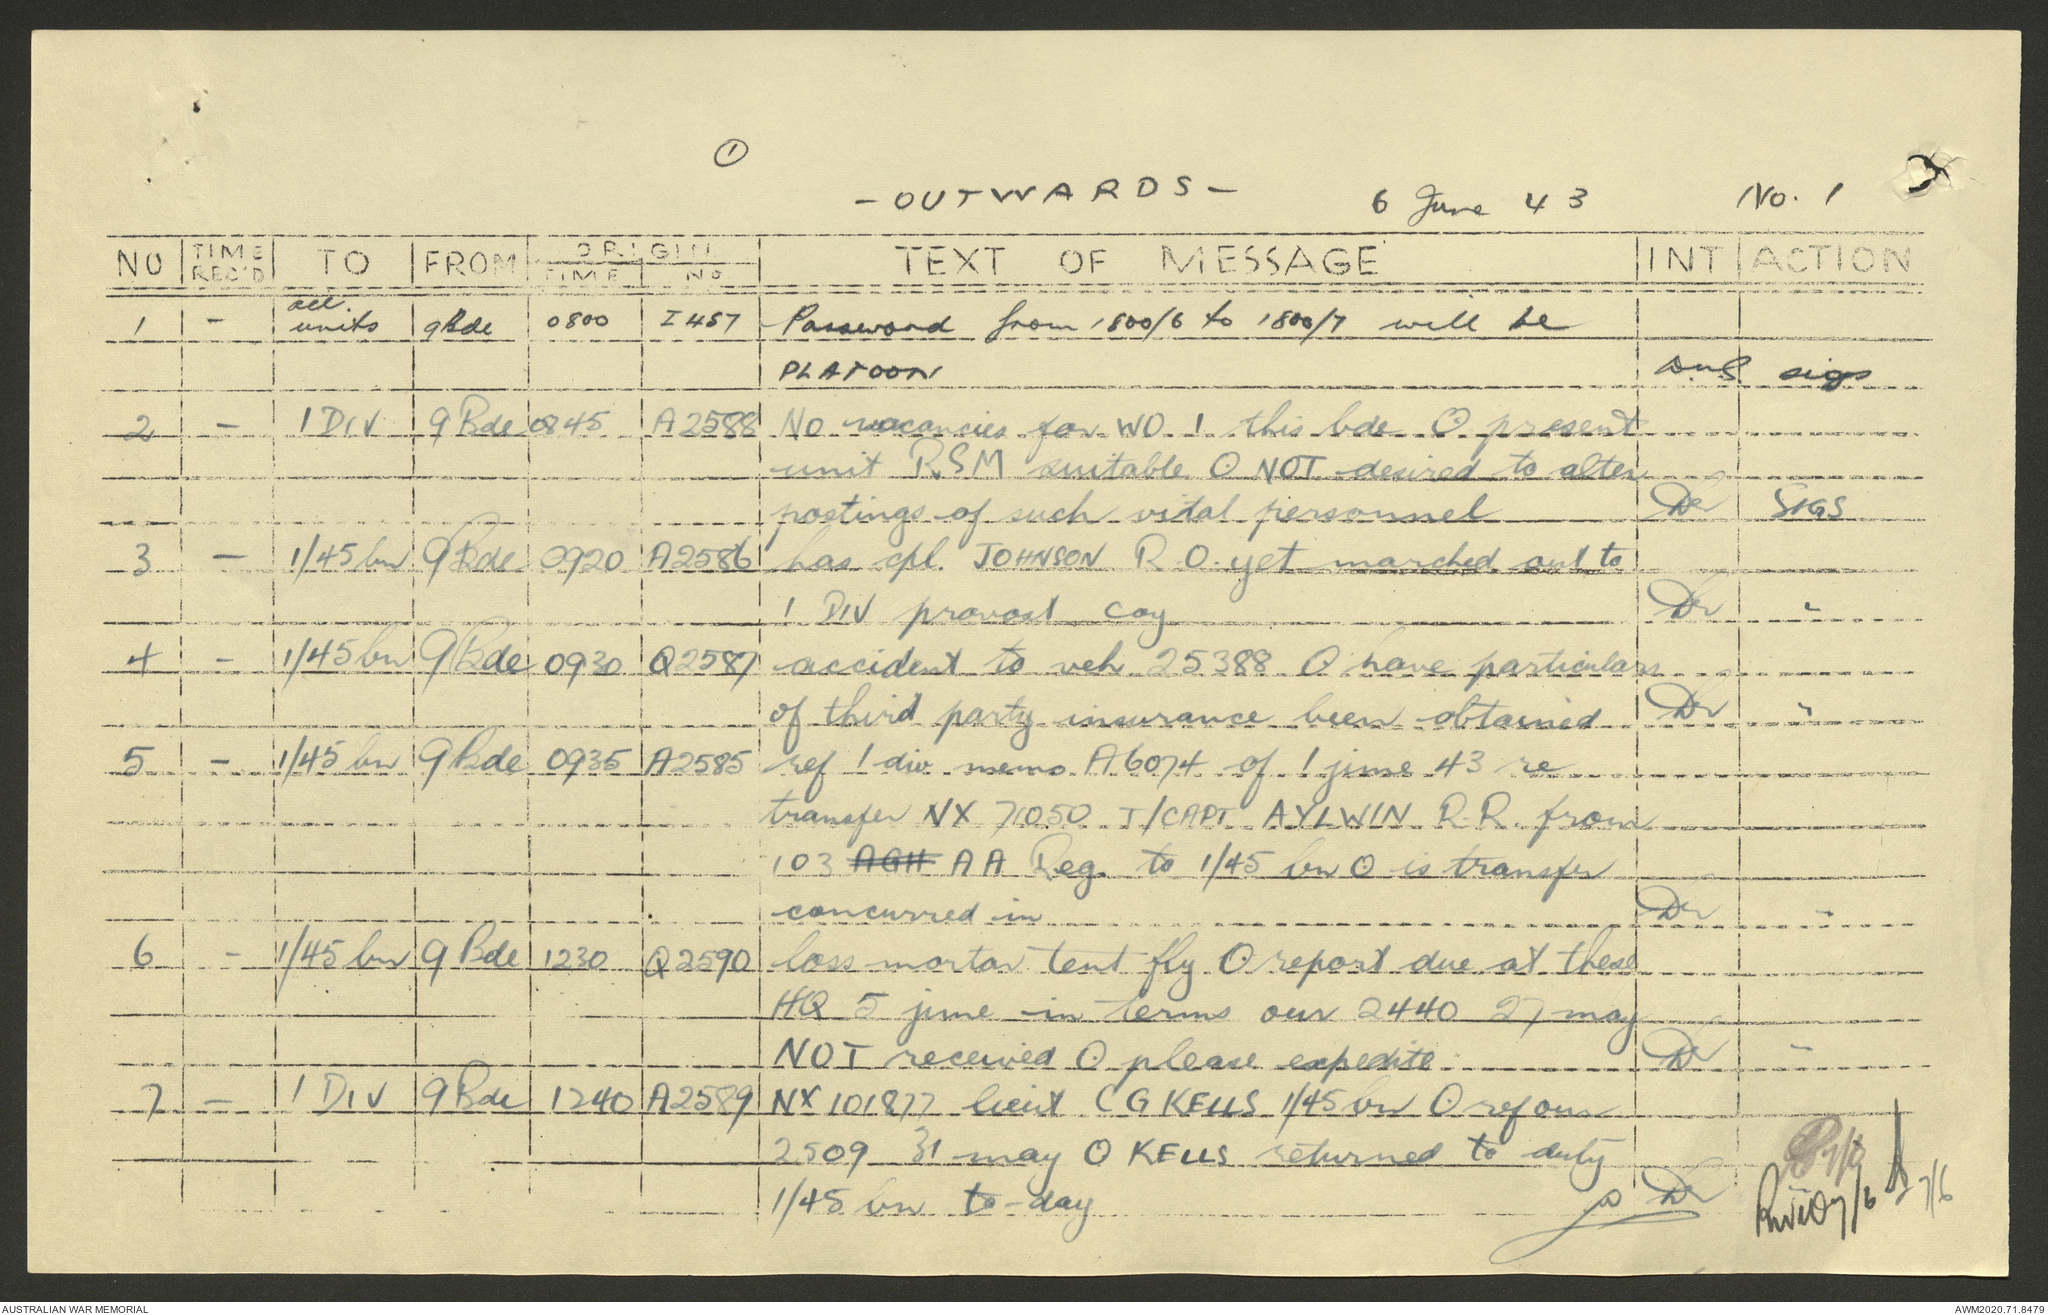 ①
- OUTWARDS - 6 June 43 No. 1
NO TIME REC'D TO FROM ORIGIN TIME NO TEXT OF MESSAGE INT ACTION
1 - all units 9 Bde 0800 I 457 Password from 1800/6 to 1800/7 will be
PLATOON sigs
2 - 1 DIV 9 Bde 0845 A2588 No vacancies for WO 1 this bde O present
unit RSM suitable O NOT desired to alter
postings of such vital personnel SIGS
3 - 1/45 bn 9 Bde 0920 A2586 has cpl. JOHNSON R O. yet marched out to
1 DIV provost coy "
4 - 1/45 bn 9 Bde 0930 Q2587 accident to veh 25388 O have particulars
of third party insurance been obtained "
5 - 1/45 bn 9 Bde 0935 A2585 ref 1 div memo A6074 of 1 june 43 re
transfer NX 71050 T/CAPT AYLWIN R.R. from
103 AGH AA Reg. to 1/45 bn O is transfer
concurred in "
6 - 1/45 bn 9 Bde 1230 Q2590 loss mortar tent fly O report due at these
HQ 5 june in terms our 2440 27 may
NOT received O please expedite "
7 - 1 DIV 9 Bde 1240 A2589 NX 101877 lieut C G KELLS 1/45 bn O ref our
2509 31 may O KELLS returned to duty
1/45 bn to-day 7/6
AUSTRALIAN WAR MEMORIAL AWM2020.71.8479